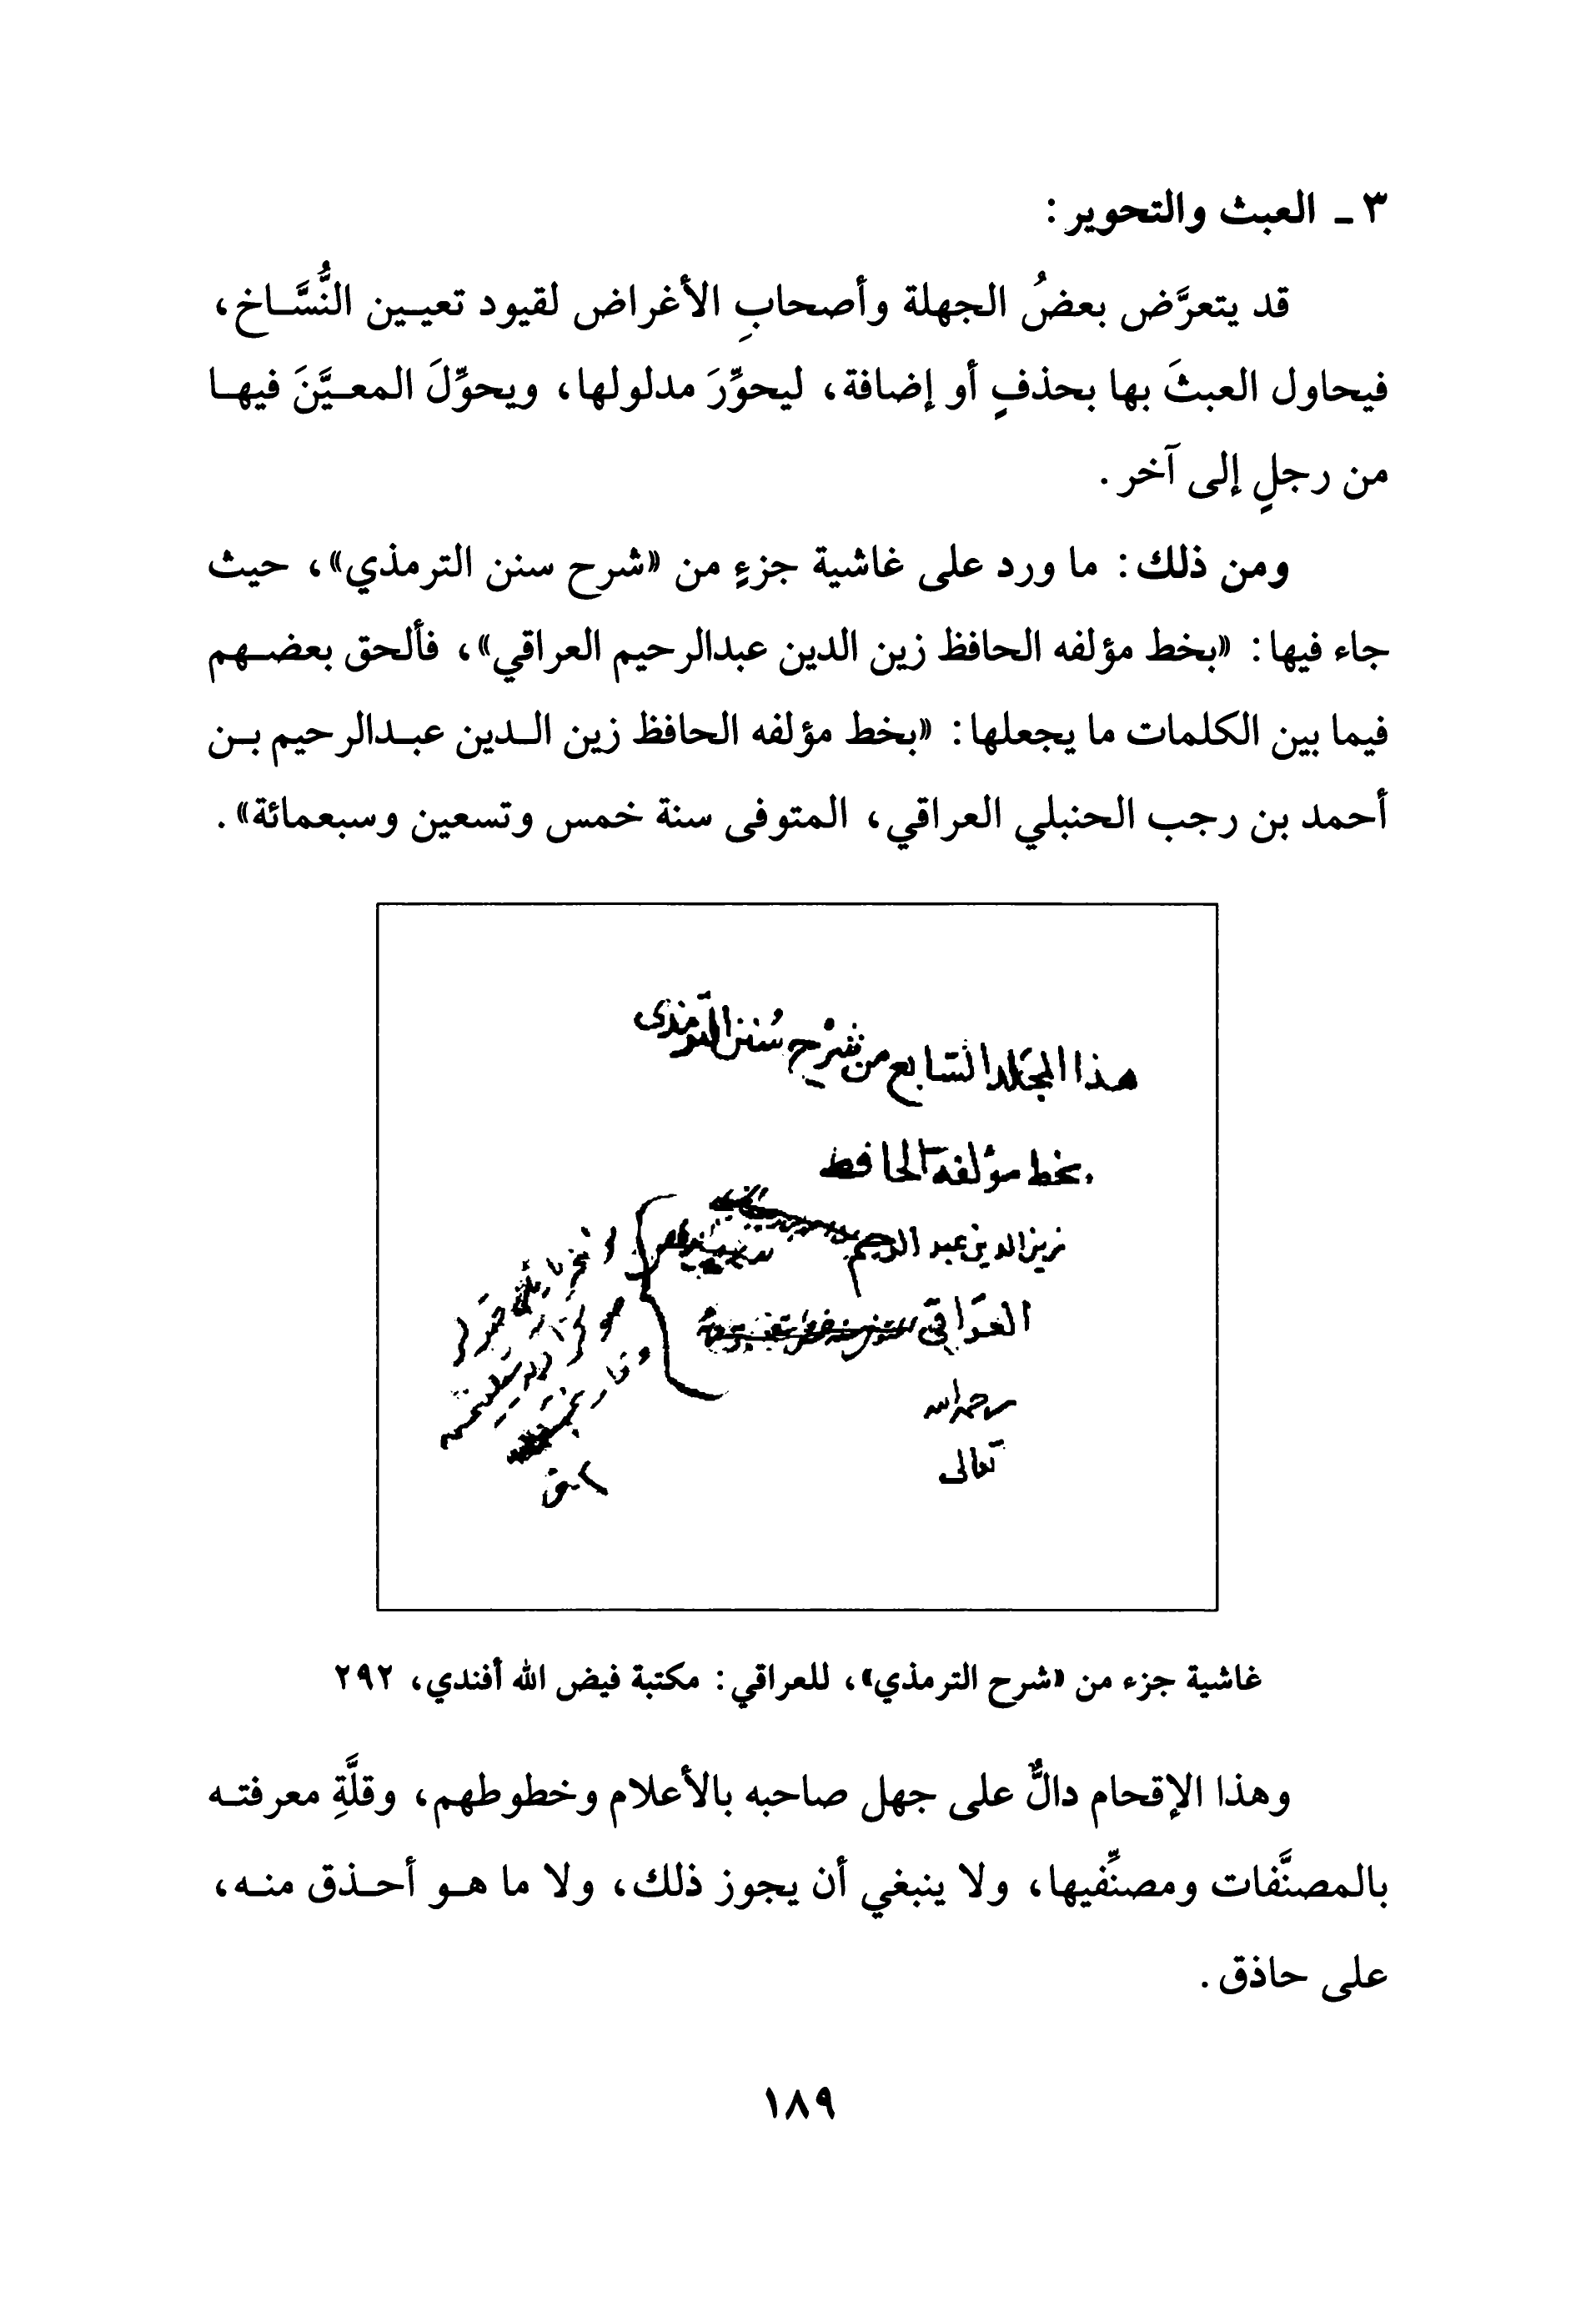 ٣ ـ العبث والتحوير :
قد يتعرَّض بعضُ الجهلة وأصحابِ الأغراض لقيود تعيـين النُّسَّـاخ،
فيحاول العبثَ بها بحذفٍ أو إضافة، ليحوِّرَ مدلولها، ويحوِّلَ المعـيَّنَ فيهـا
من رجلٍ إلى آخر .
ومن ذلك : ما ورد على غاشية جزءٍ من «شرح سنن الترمذي»، حيث
جاء فيها : «بخط مؤلفه الحافظ زين الدين عبدالرحيم العراقي»، فألحق بعضـهم
فيما بين الكلمات ما يجعلها : «بخط مؤلفه الحافظ زين الـدين عبـدالرحيم بـن
أحمد بن رجب الحنبلي العراقي، المتوفى سنة خمس وتسعين وسبعمائة» .
هذا المجلد السابع من شرح سنن الترمذى
بخط مؤلفه الحافظ
زين الدين عبد الرحيم
العراقي
رحمه الله
تعالى
غاشية جزء من «شرح الترمذي»، للعراقي : مكتبة فيض الله أفندي، ٢٩٢
وهذا الإقحام دالٌّ على جهل صاحبه بالأعلام وخطوطهم، وقلَّةِ معرفتـه
بالمصنَّفات ومصنِّفيها، ولا ينبغي أن يجوز ذلك، ولا ما هـو أحـذق منـه،
على حاذق .
١٨٩